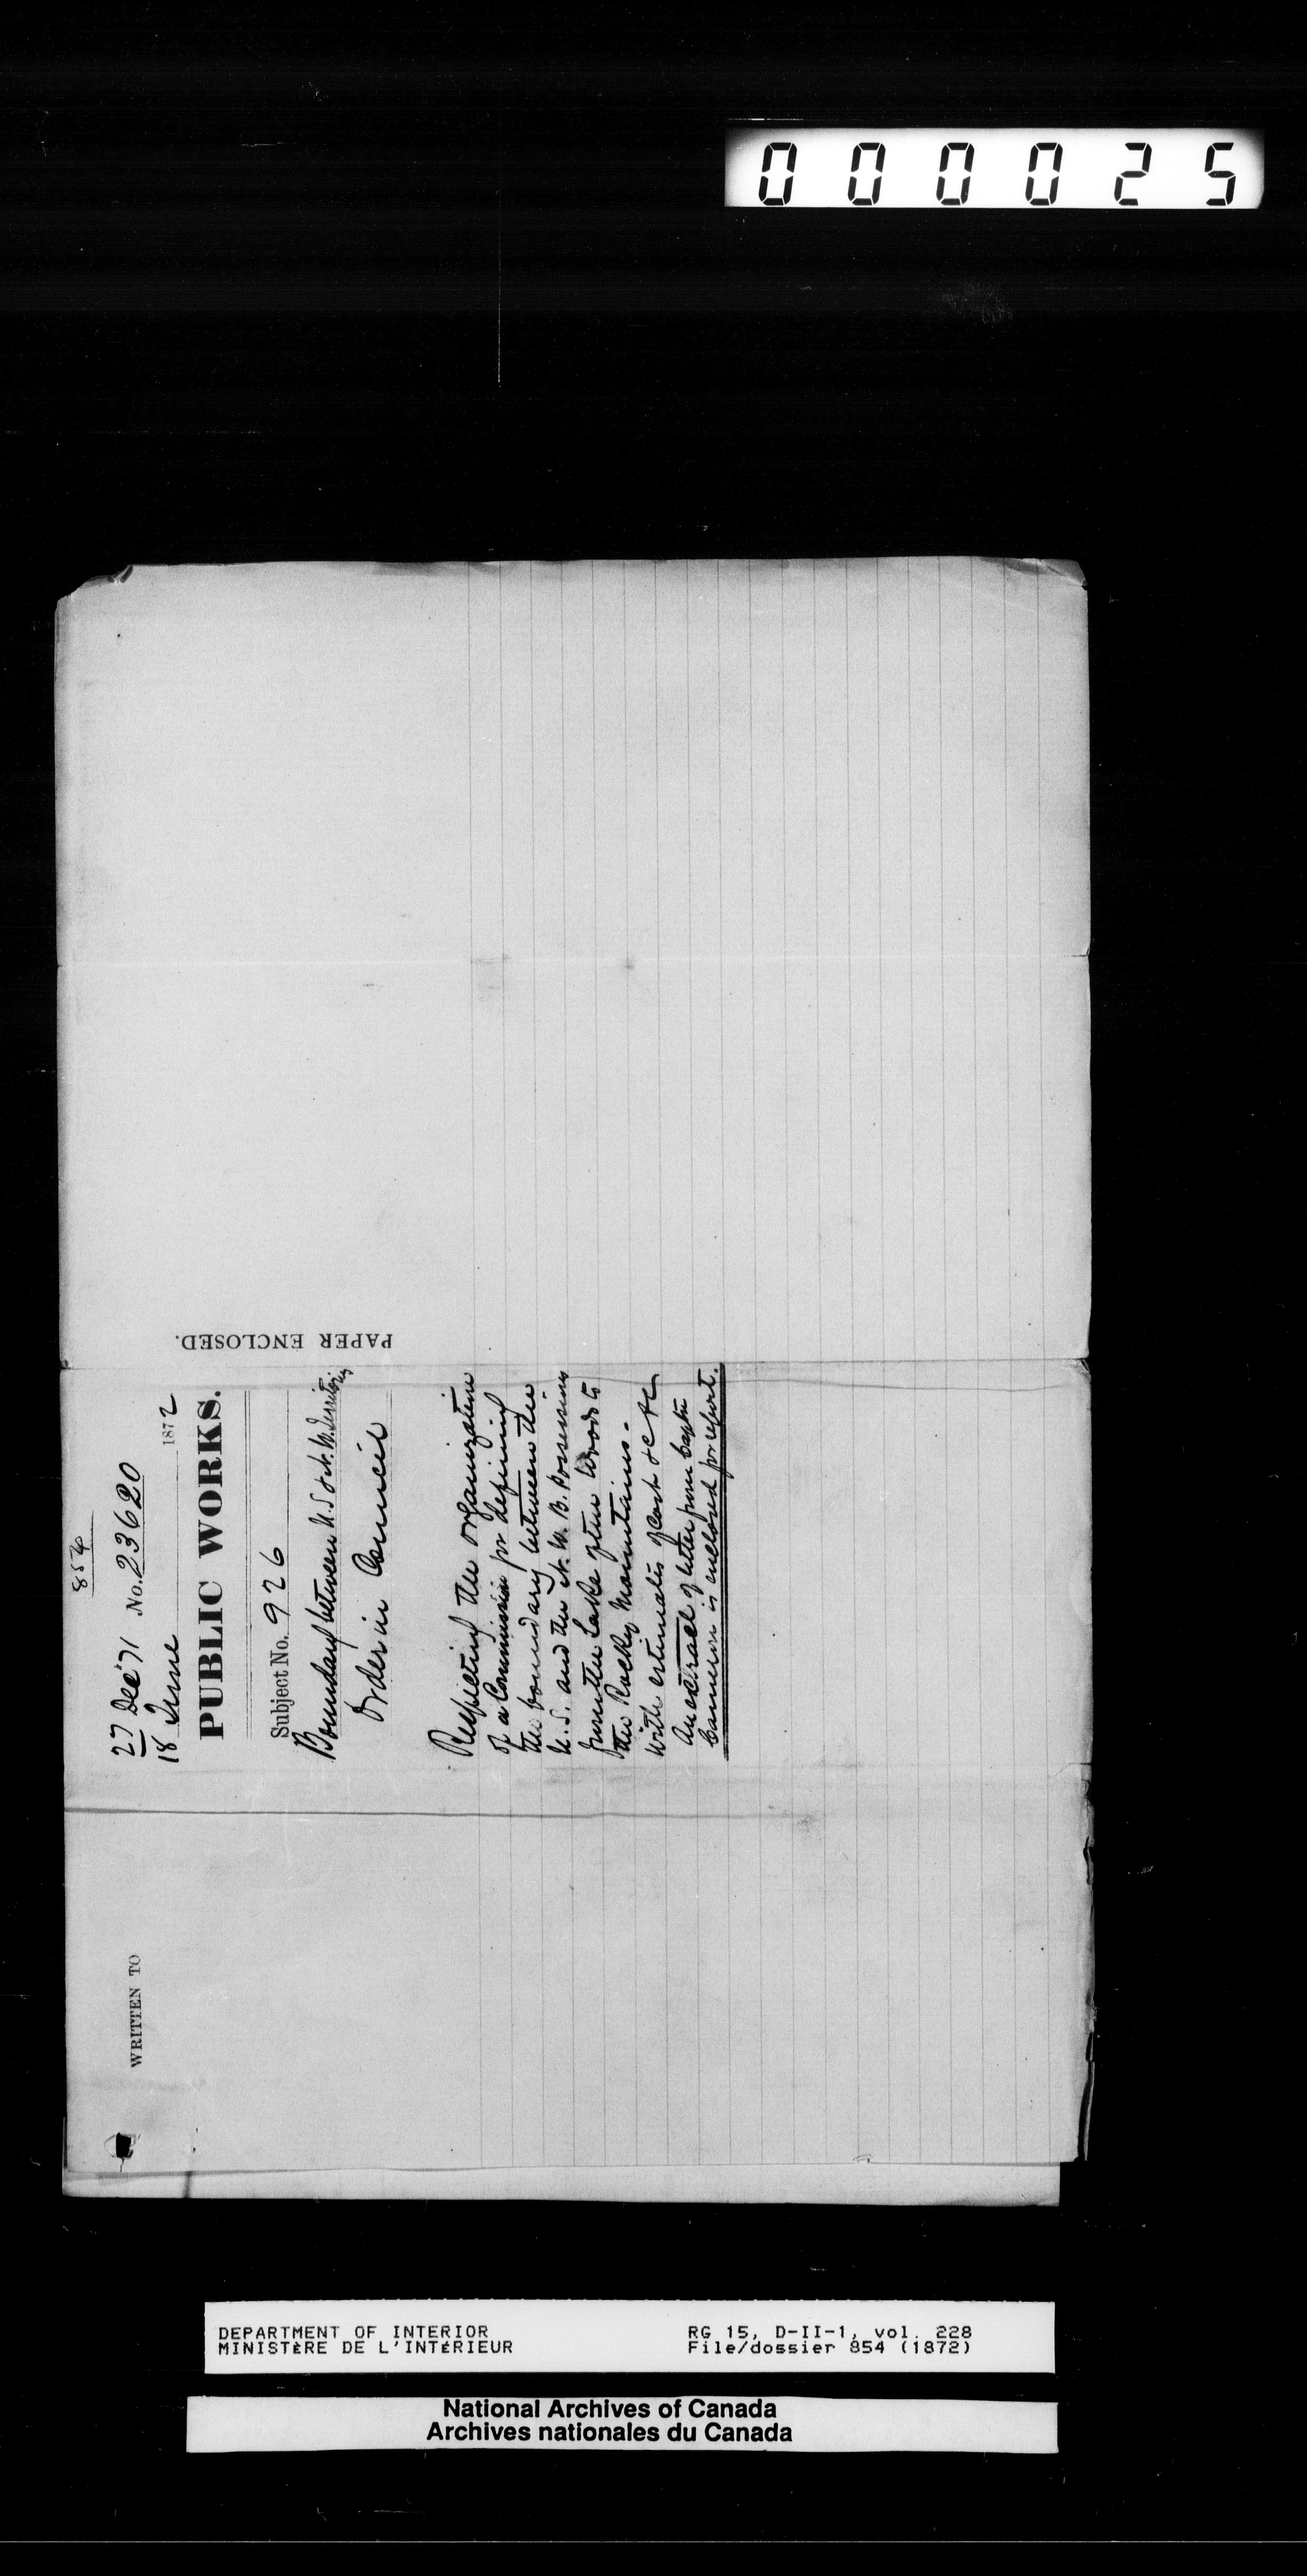 000025
854
27 Dec '71 No. 23620
18 June 1872
PUBLIC WORKS.
Subject No. 926
Boundary between U.S & N.W. Territories
Order in Council
Respecting the organization
of a Commission for defining
the boundary between the
U.S. and the N.W.B. Possessions
from the Lake of the Woods to
the Rocky Mountains.
With estimates of Cost &c &c
An extract of letter from Captn
Cameron is enclosed for report.
PAPER ENCLOSED.
WRITTEN TO
DEPARTMENT OF INTERIOR
MINISTÈRE DE L'INTÉRIEUR
RG 15, D-II-1, vol. 228
File/dossier 854 (1872)
National Archives of Canada
Archives nationales du Canada